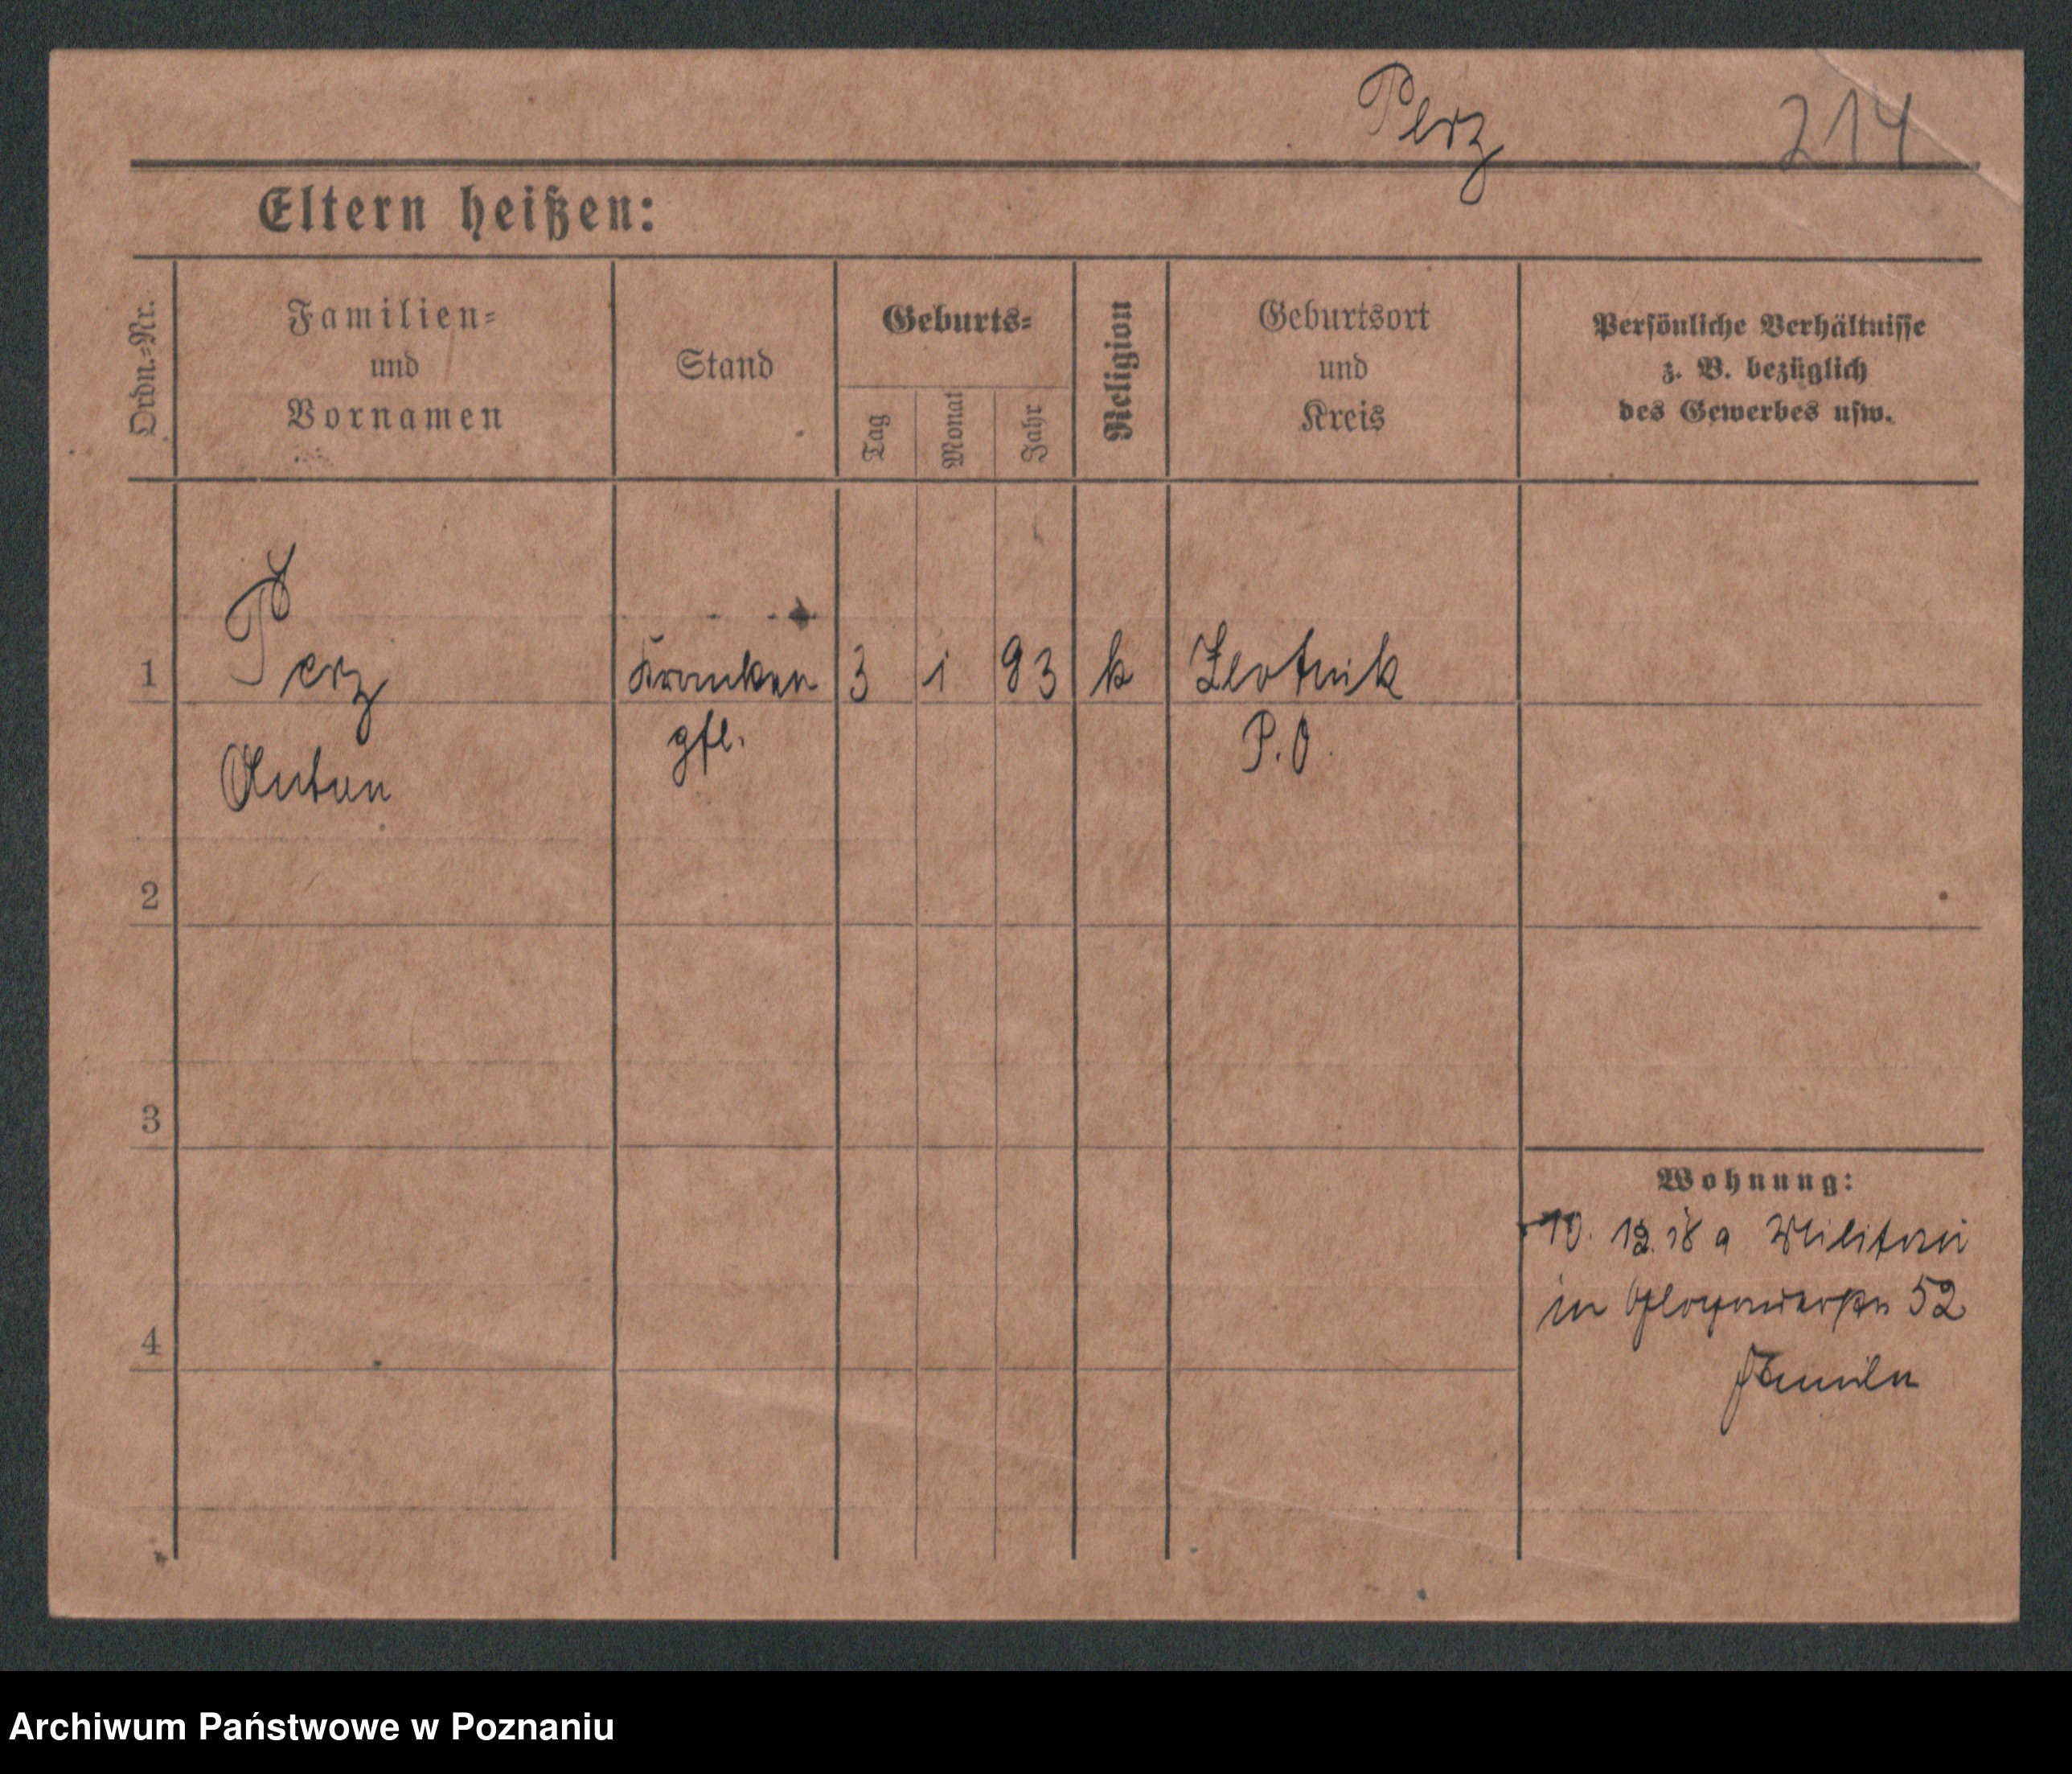 Perz 214
Eltern heißen:
Ordn.-Nr.
Familien-
und
Vornamen
Stand
Geburts-
Tag
Monat
Jahr
Religion
Geburtsort
und
Kreis
Persönliche Verhältnisse
z. B. bezüglich
des Gewerbes usw.
1 Perz Kranken 3 1 93 k Zlotnik
Anton gfl. P.O.
2
3
4
Wohnung:
10. 12. 18 a Militär
in 52
Archiwum Państwowe w Poznaniu